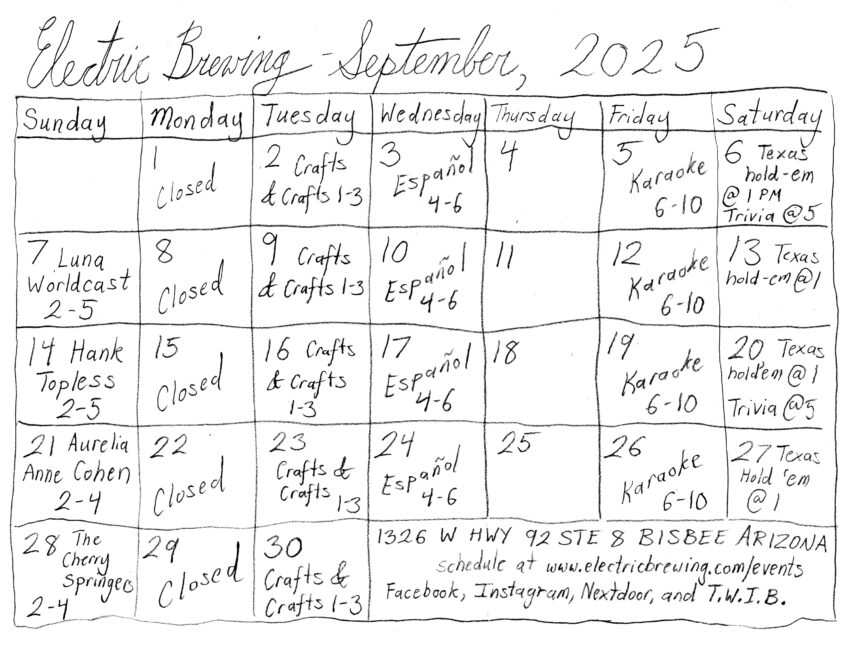 Electric Brewing - September, 2025
Sunday Monday Tuesday Wednesday Thursday Friday Saturday
1
Closed
2 Crafts
& Crafts 1-3
3
Español
4-6
4
5
Karaoke
6-10
6 Texas
hold-em
@ 1 PM
Trivia @ 5
7 Luna
Worldcast
2-5
8
Closed
9 Crafts
& Crafts 1-3
10
Español
4-6
11
12
Karaoke
6-10
13 Texas
hold-em @ 1
14 Hank
Topless
2-5
15
Closed
16 Crafts
& Crafts
1-3
17
Español
4-6
18
19
Karaoke
6-10
20 Texas
hold'em @ 1
Trivia @ 5
21 Aurelia
Anne Cohen
2-4
22
Closed
23
Crafts &
Crafts 1-3
24
Español
4-6
25
26
Karaoke
6-10
27 Texas
Hold 'em
@ 1
28 The
Cherry
Springers
2-4
29
Closed
30
Crafts &
Crafts 1-3
1326 W HWY 92 STE 8 BISBEE ARIZONA
schedule at www.electricbrewing.com/events
Facebook, Instagram, Nextdoor, and T.W.I.B.